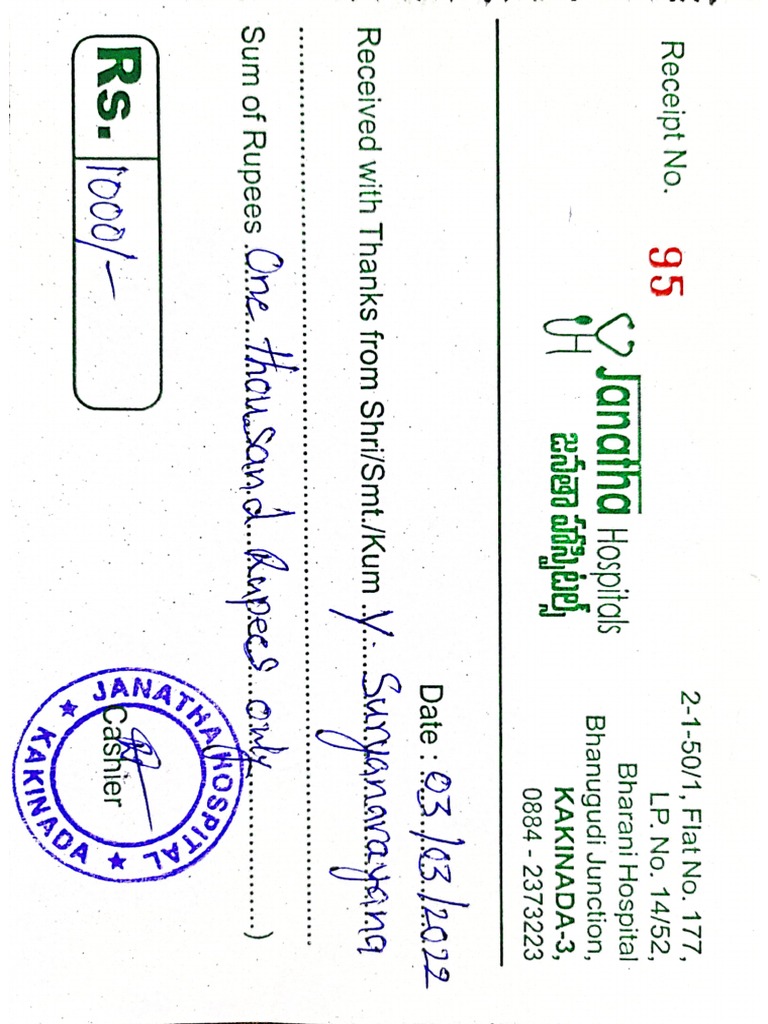 Receipt No. 95
Janatha Hospitals
జనతా హాస్పిటల్స్
2-1-50/1, Flat No. 177,
LP. No. 14/52,
Bharani Hospital
Bhanugudi Junction,
KAKINADA-3,
0884 - 2373223
Date : 03/03/2022
Received with Thanks from Shri/Smt./Kum Y. Suryanarayana
Sum of Rupees One thousand Rupees only )
Rs. 1000/-
JANATHA HOSPITAL
★ KAKINADA ★
Cashier